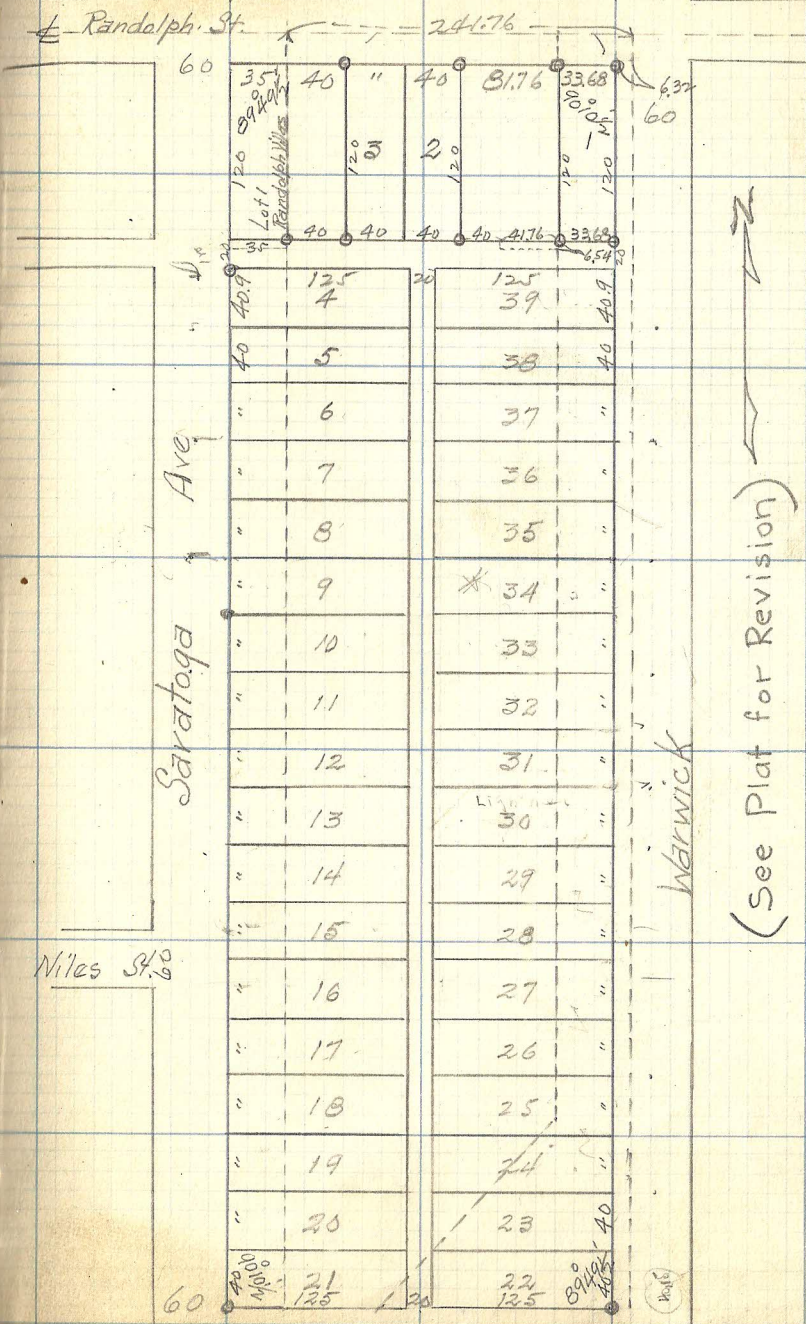 ℄ Randolph. St.
241.76
60 35 40 " 40 81.76 33.68 6.32
60
89°49½'
90°10½'
120 Lot 1 Randolph Villas 120 3 2 120 120 120
35 40 40 40 40 41.76 33.68
6.54
20 20
125 20 125
40.9 4 39 40.9
40 5 38 40
" 6 37 "
" 7 36 "
" 8 35 "
" 9 34 "
" 10 33 "
" 11 32 "
" 12 31 "
" 13 30 "
" 14 29 "
" 15 28 "
" 16 27 "
" 17 26 "
" 18 25 "
" 19 24 "
" 20 23 40
40 21 22
60 125 20 125
89°49½'
Saratoga Ave
Niles St. 60
Warwick
(See Plat for Revision)
N